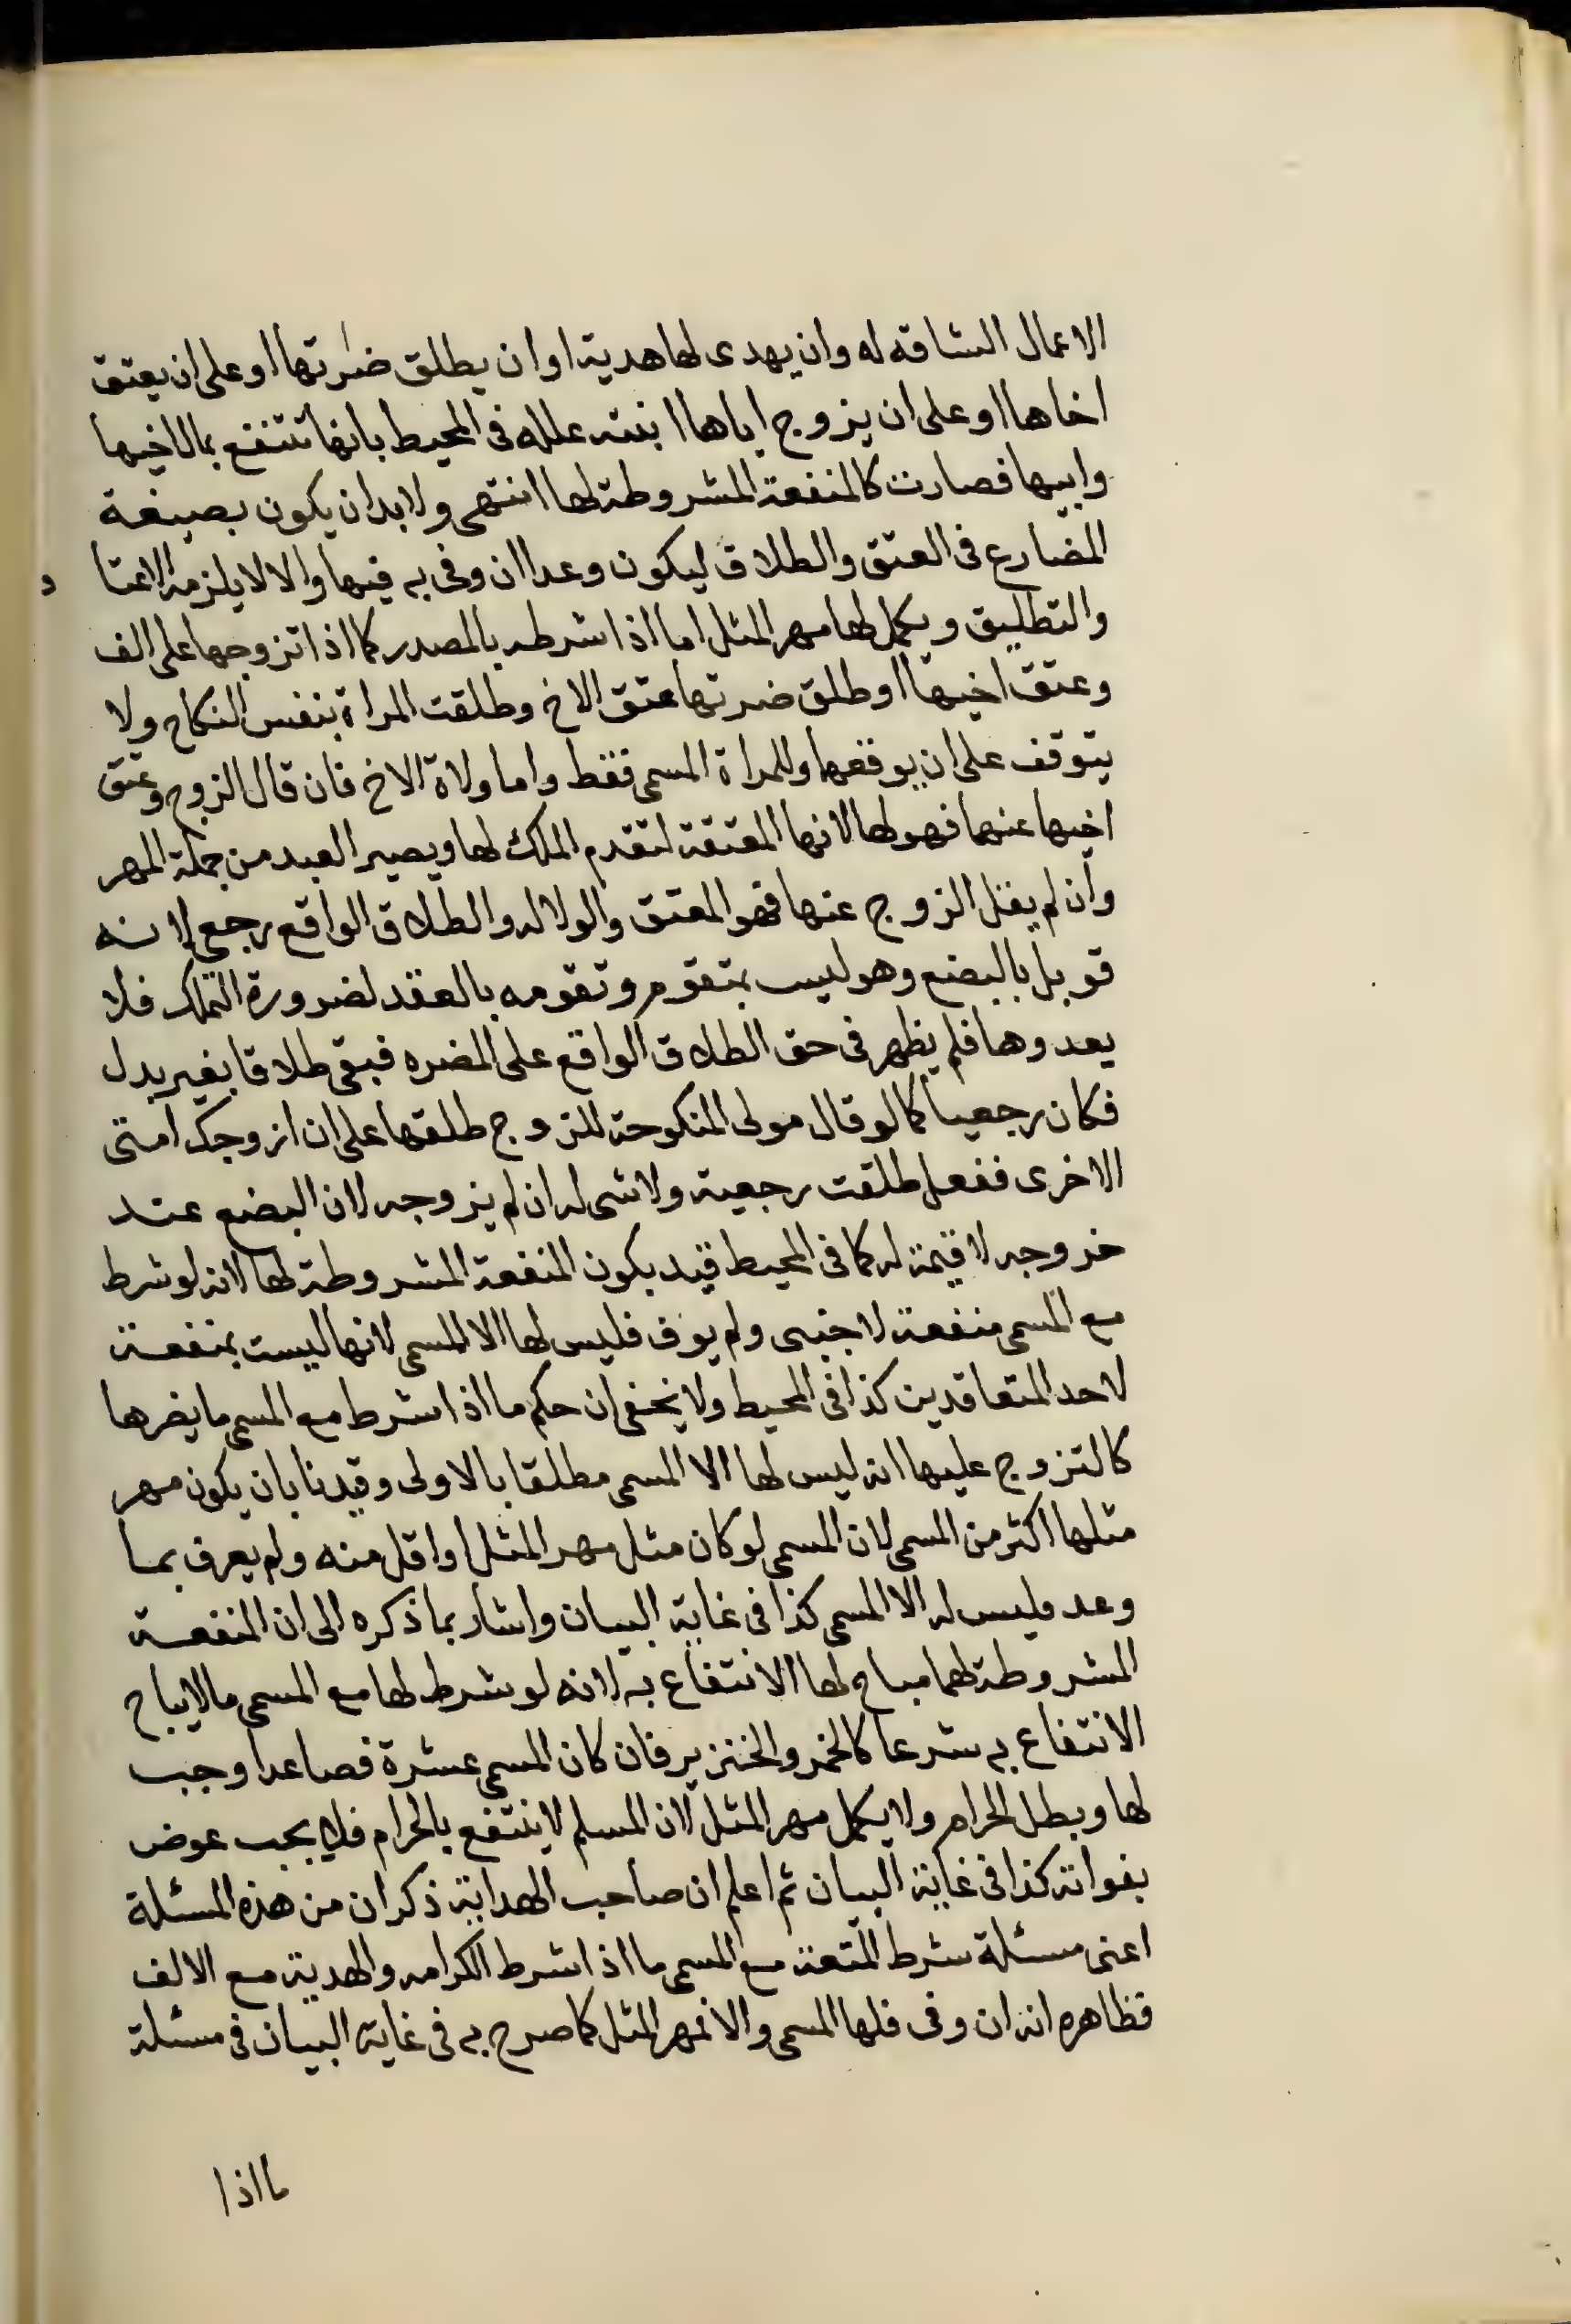 الاعمال الشاقه له وان يهدى لها هدية او ان يطلق ضرتها او على ان يعتق
اخاها او على ان يزوج اباها ابنته علله فى المحيط بانها تنتفع بمال اخيها
وابيها فصارت كالمنفعة المشروطة لها انتهى ولا بد ان يكون بصيغة
المضارع فى العتق والطلاق ليكون وعدا ان وفى به فيها والا لا يلزمه الاعتا د
والتطليق ويكمل لها مهر المثل اما اذا شرطه بالمصدر كما اذا تزوجها على الف
وعتق اخيها او طلق ضرتها عتق الاخ وطلقت المراة بنفس النكاح ولا
يتوقف على ان يوقعها وللمراة المسمى فقط واما ولاة الاخ فان قال الزوج وعتق
اخيها عنهما فهو لها لانها المعتقة لتقدم الملك لها ويصير العبد من جملة المهر
وان لم يقل الزوج عنها فهو المعتق والولا له والطلاق الواقع رجعى لانه
قوبل بالبضع وهو ليس بمتقوم وتقومه بالعقد لضرورة التملك فلا
يعدوها فلم يظهر فى حق الطلاق الواقع على المضره فبقى طلاقا بغير بدل
فكان رجعيا كما لو قال مولى المنكوحة للزوج طلقها على ان ازوجك امتى
الاخرى ففعل طلقت رجعية ولا شى له ان لم يزوجه لان البضع عند
خروجه لا قيمة له كما فى المحيط قيد بكون المنفعة المشروطة لها لانه لو شرط
مع المسمى منفعة لاجنبى ولم يوف فليس لها الا المسمى لانها ليست بمنفعة
لاحد المتعاقدين كذا فى المحيط ولا يخفى ان حكم ما اذا شرط مع المسمى ما يضرها
كالتزوج عليها انه ليس لها الا المسمى مطلقا بالاولى وقيدنا بان يكون مهر
مثلها اكثر من المسمى لان المسمى لو كان مثل مهر المثل او اقل منه ولم يعرف بما
وعد فليس له الا المسمى كذا فى غاية البيان واشار بما ذكره الى ان المنفعة
المشروطة لهما مباح لها الانتفاع به لانه لو شرط لها مع المسمى مالا يباح
الانتفاع به شرعا كالخمر والخنزير فان كان المسمى عشرة فصاعدا وجب
لها وبطل الحرام ولا يكمل مهر المثل لان المسلم لا ينتفع بالحرام فلا يجب عوض
بفواته كذا فى غاية البيان ثم اعلم ان صاحب الهداية ذكر ان من هذه المسئلة
اعنى مسئلة شرط المتعة مع المسمى ما اذا شرط الكرامه والهدية مع الالف
فظاهره انه ان وفى فلها المسمى والا فمهر المثل كما صرح به فى غاية البيان فى مسئلة
ما اذا